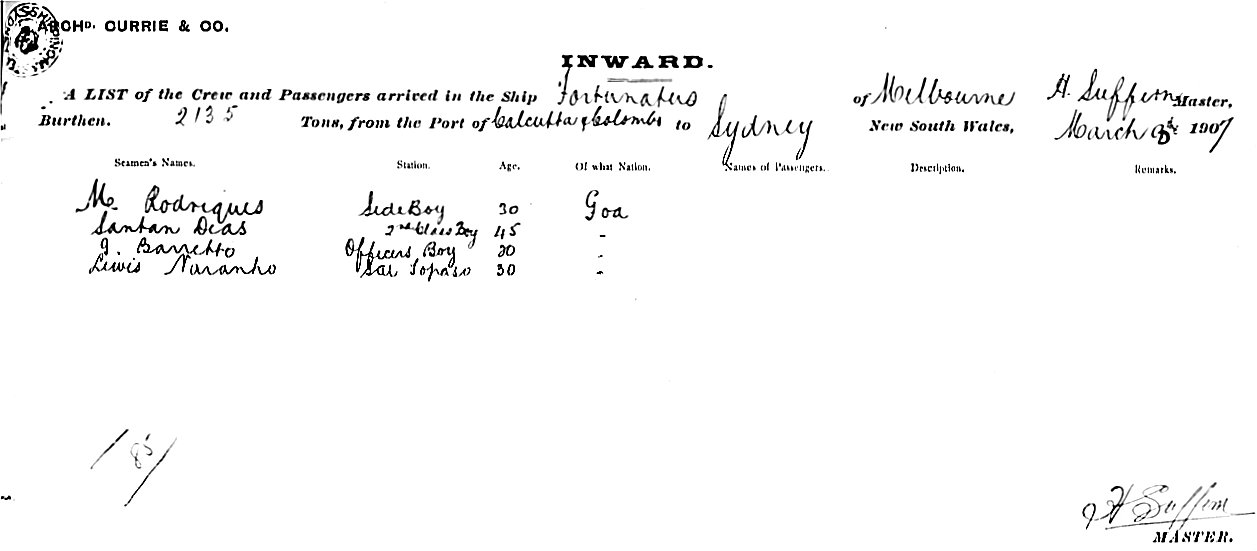 ARCHD. CURRIE & CO.
INWARD.
A LIST of the Crew and Passengers arrived in the Ship Fortunatus of Melbourne H. Suffern Master,
Burthen. 2135 Tons, from the Port of Calcutta & Colombo to Sydney New South Wales, March 1907
Seamen's Names. Station. Age. Of what Nation. Names of Passengers. Description. Remarks.
M. Rodriques Side Boy 30 Goa
Santan Dias 2nd Class Boy 45 "
J. Barretto Officers Boy 20 "
Lewis Naranho Topaso 30 "
85
H Suffern
MASTER.